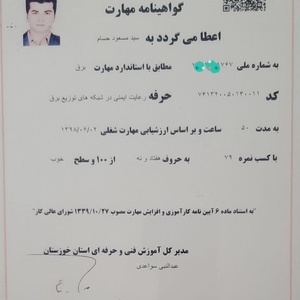 گواهینامه مهارت
اعطا می گردد به سید مسعود حسام
به شماره ملی ۷۶۷ مطابق با استاندارد مهارت برق
کد ۷۴۱۳۲۰۰۵۰۲۳۰۰۲۱ حرفه رعایت ایمنی در شبکه های توزیع برق
به مدت ۵۰ ساعت و بر اساس ارزشیابی مهارت شغلی ۱۳۹۸/۰۶/۰۲
با کسب نمره ۷۹ به حروف هفتاد و نه از ۱۰۰ و سطح خوب
"به استناد ماده ۶ آیین نامه کارآموزی و افزایش مهارت مصوب ۱۳۳۹/۱۰/۲۷ شورای عالی کار"
مدیر کل آموزش فنی و حرفه ای استان خوزستان
عبدالنبی سواعدی